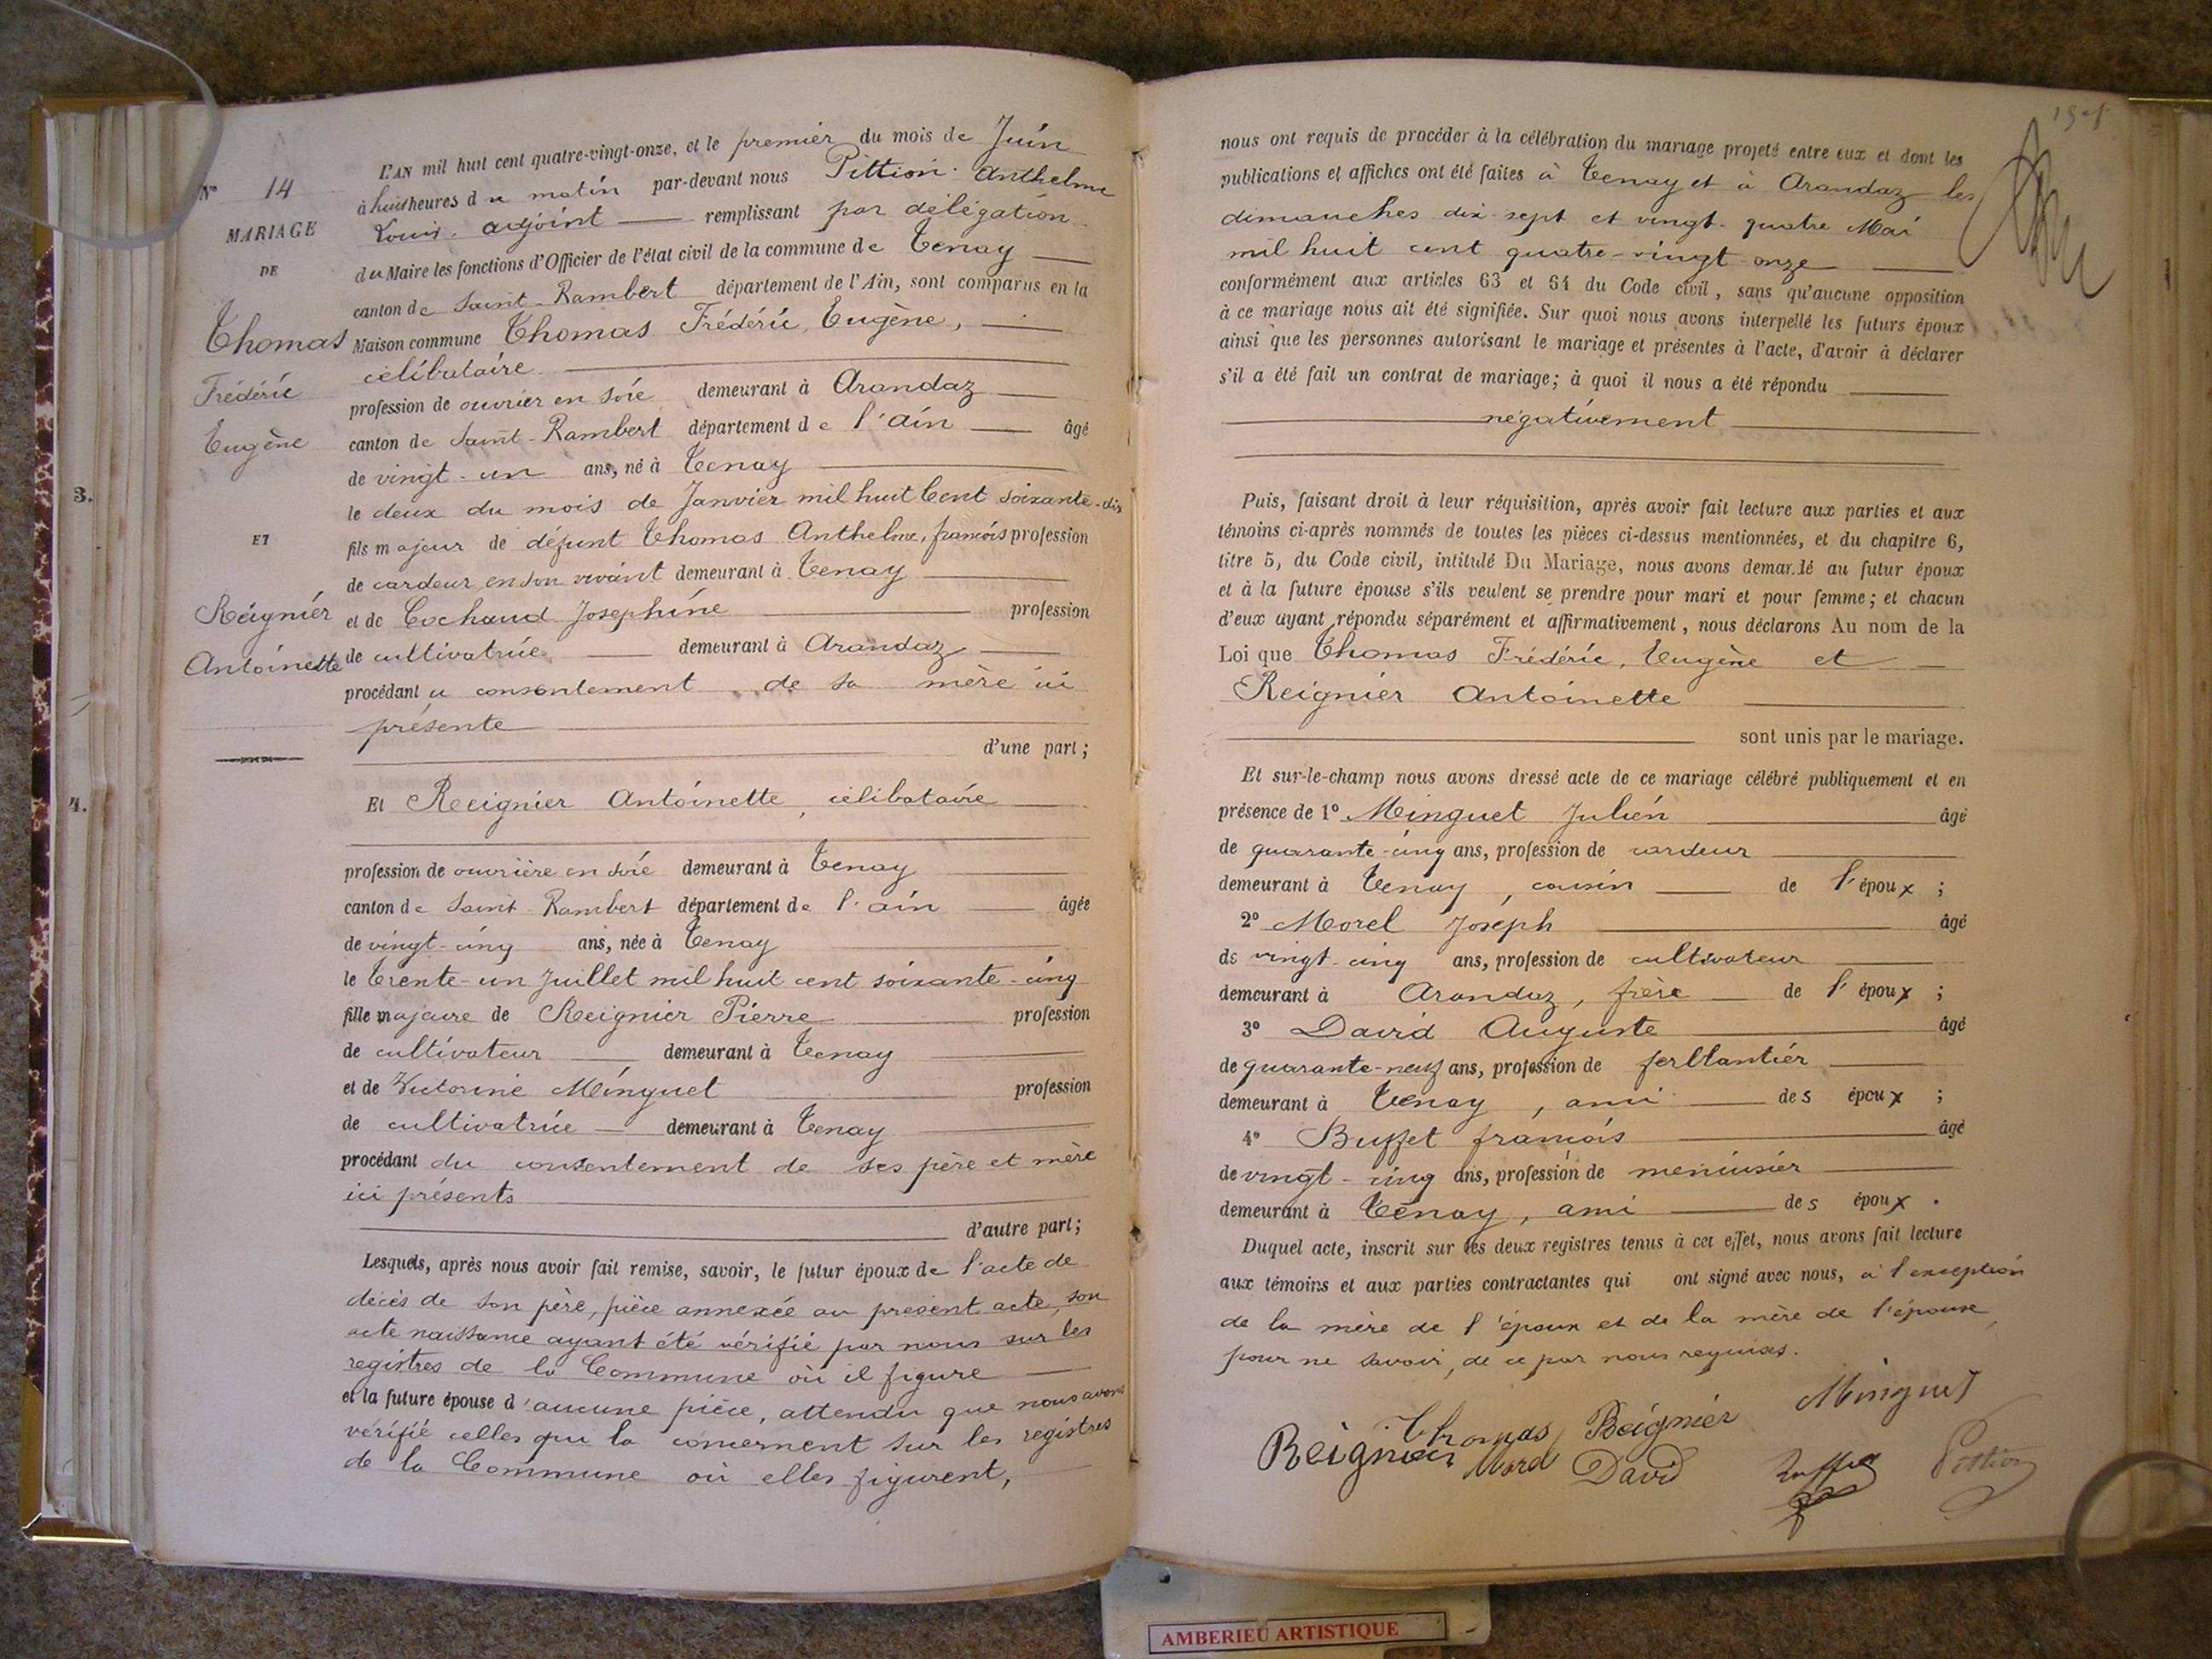 N° 14
MARIAGE
DE
Thomas
Frédéric
Eugène
ET
Reignier
Antoinette
3.
4.
L'AN mil huit cent quatre-vingt-onze, et le premier du mois de Juin
à huit heures du matin par-devant nous Pittion Anthelme
Louis, adjoint remplissant par délégation
du Maire les fonctions d'Officier de l'état civil de la commune de Tenay
canton de Saint-Rambert département de l'Ain, sont comparus en la
Maison commune Thomas Frédéric, Eugène,
célibataire
profession de ouvrier en soie demeurant à Arandaz
canton de Saint-Rambert département de l'ain âgé
de vingt-un ans, né à Tenay
le deux du mois de Janvier mil huit Cent soixante-dix
fils majeur de défunt Thomas Anthelme, francois profession
de cardeur en son vivant demeurant à Tenay
et de Cochaud Josephine profession
de cultivatrice demeurant à Arandaz
procédant u consentement de sa mère ici
présente
d'une part;
Et Reignier Antoinette, célibataire
profession de ouvrière en soie demeurant à Tenay
canton de Saint-Rambert département de l'ain âgée
de vingt-cinq ans, née à Tenay
le trente-un Juillet mil huit cent soixante-cinq
fille majeure de Reignier Pierre profession
de cultivateur demeurant à Tenay
et de Victorine Minguet profession
de cultivatrice demeurant à Tenay
procédant du consentement de ses père et mère
ici présents
d'autre part;
Lesquels, après nous avoir fait remise, savoir, le futur époux de l'acte de
décès de son père, pièce annexée au present acte, son
acte naissance ayant été vérifié par nous sur les
registres de la Commune où il figure
et la future épouse d'aucune pièce, attendu que nous avons
vérifié celles qui la concernent sur les registres
de la Commune où elles figurent,
nous ont requis de procéder à la célébration du mariage projeté entre eux et dont les
publications et affiches ont été faites à Tenay et à Arandaz les
dimanches dix-sept et vingt-quatre Mai
mil huit cent quatre-vingt onze
conformément aux articles 63 et 64 du Code civil, sans qu'aucune opposition
à ce mariage nous ait été signifiée. Sur quoi nous avons interpellé les futurs époux
ainsi que les personnes autorisant le mariage et présentes à l'acte, d'avoir à déclarer
s'il a été fait un contrat de mariage; à quoi il nous a été répondu
négativement
Puis, faisant droit à leur réquisition, après avoir fait lecture aux parties et aux
témoins ci-après nommés de toutes les pièces ci-dessus mentionnées, et du chapitre 6,
titre 5, du Code civil, intitulé Du Mariage, nous avons demandé au futur époux
et à la future épouse s'ils veulent se prendre pour mari et pour femme; et chacun
d'eux ayant répondu séparément et affirmativement, nous déclarons Au nom de la
Loi que Thomas Frédéric, Eugène et
Reignier Antoinette
sont unis par le mariage.
Et sur-le-champ nous avons dressé acte de ce mariage célébré publiquement et en
présence de 1° Minguet Julien âgé
de quarante-cinq ans, profession de cardeur
demeurant à Tenay, cousin de l'époux;
2° Morel Joseph âgé
de vingt-cinq ans, profession de cultivateur
demeurant à Arandaz, frère de l'époux;
3° David Auguste âgé
de quarante-neuf ans, profession de ferblantier
demeurant à Tenay, ami des époux;
4° Buffet francois âgé
de vingt-cinq ans, profession de menuisier
demeurant à Tenay, ami des époux.
Duquel acte, inscrit sur les deux registres tenus à cet effet, nous avons fait lecture
aux témoins et aux parties contractantes qui ont signé avec nous, à l'exception
de la mère de l'époux et de la mère de l'épouse,
pour ne savoir, de ce par nous requises.
Thomas Reignier Minguet
Reignier Morel David Buffet Pittion
AMBERIEU ARTISTIQUE